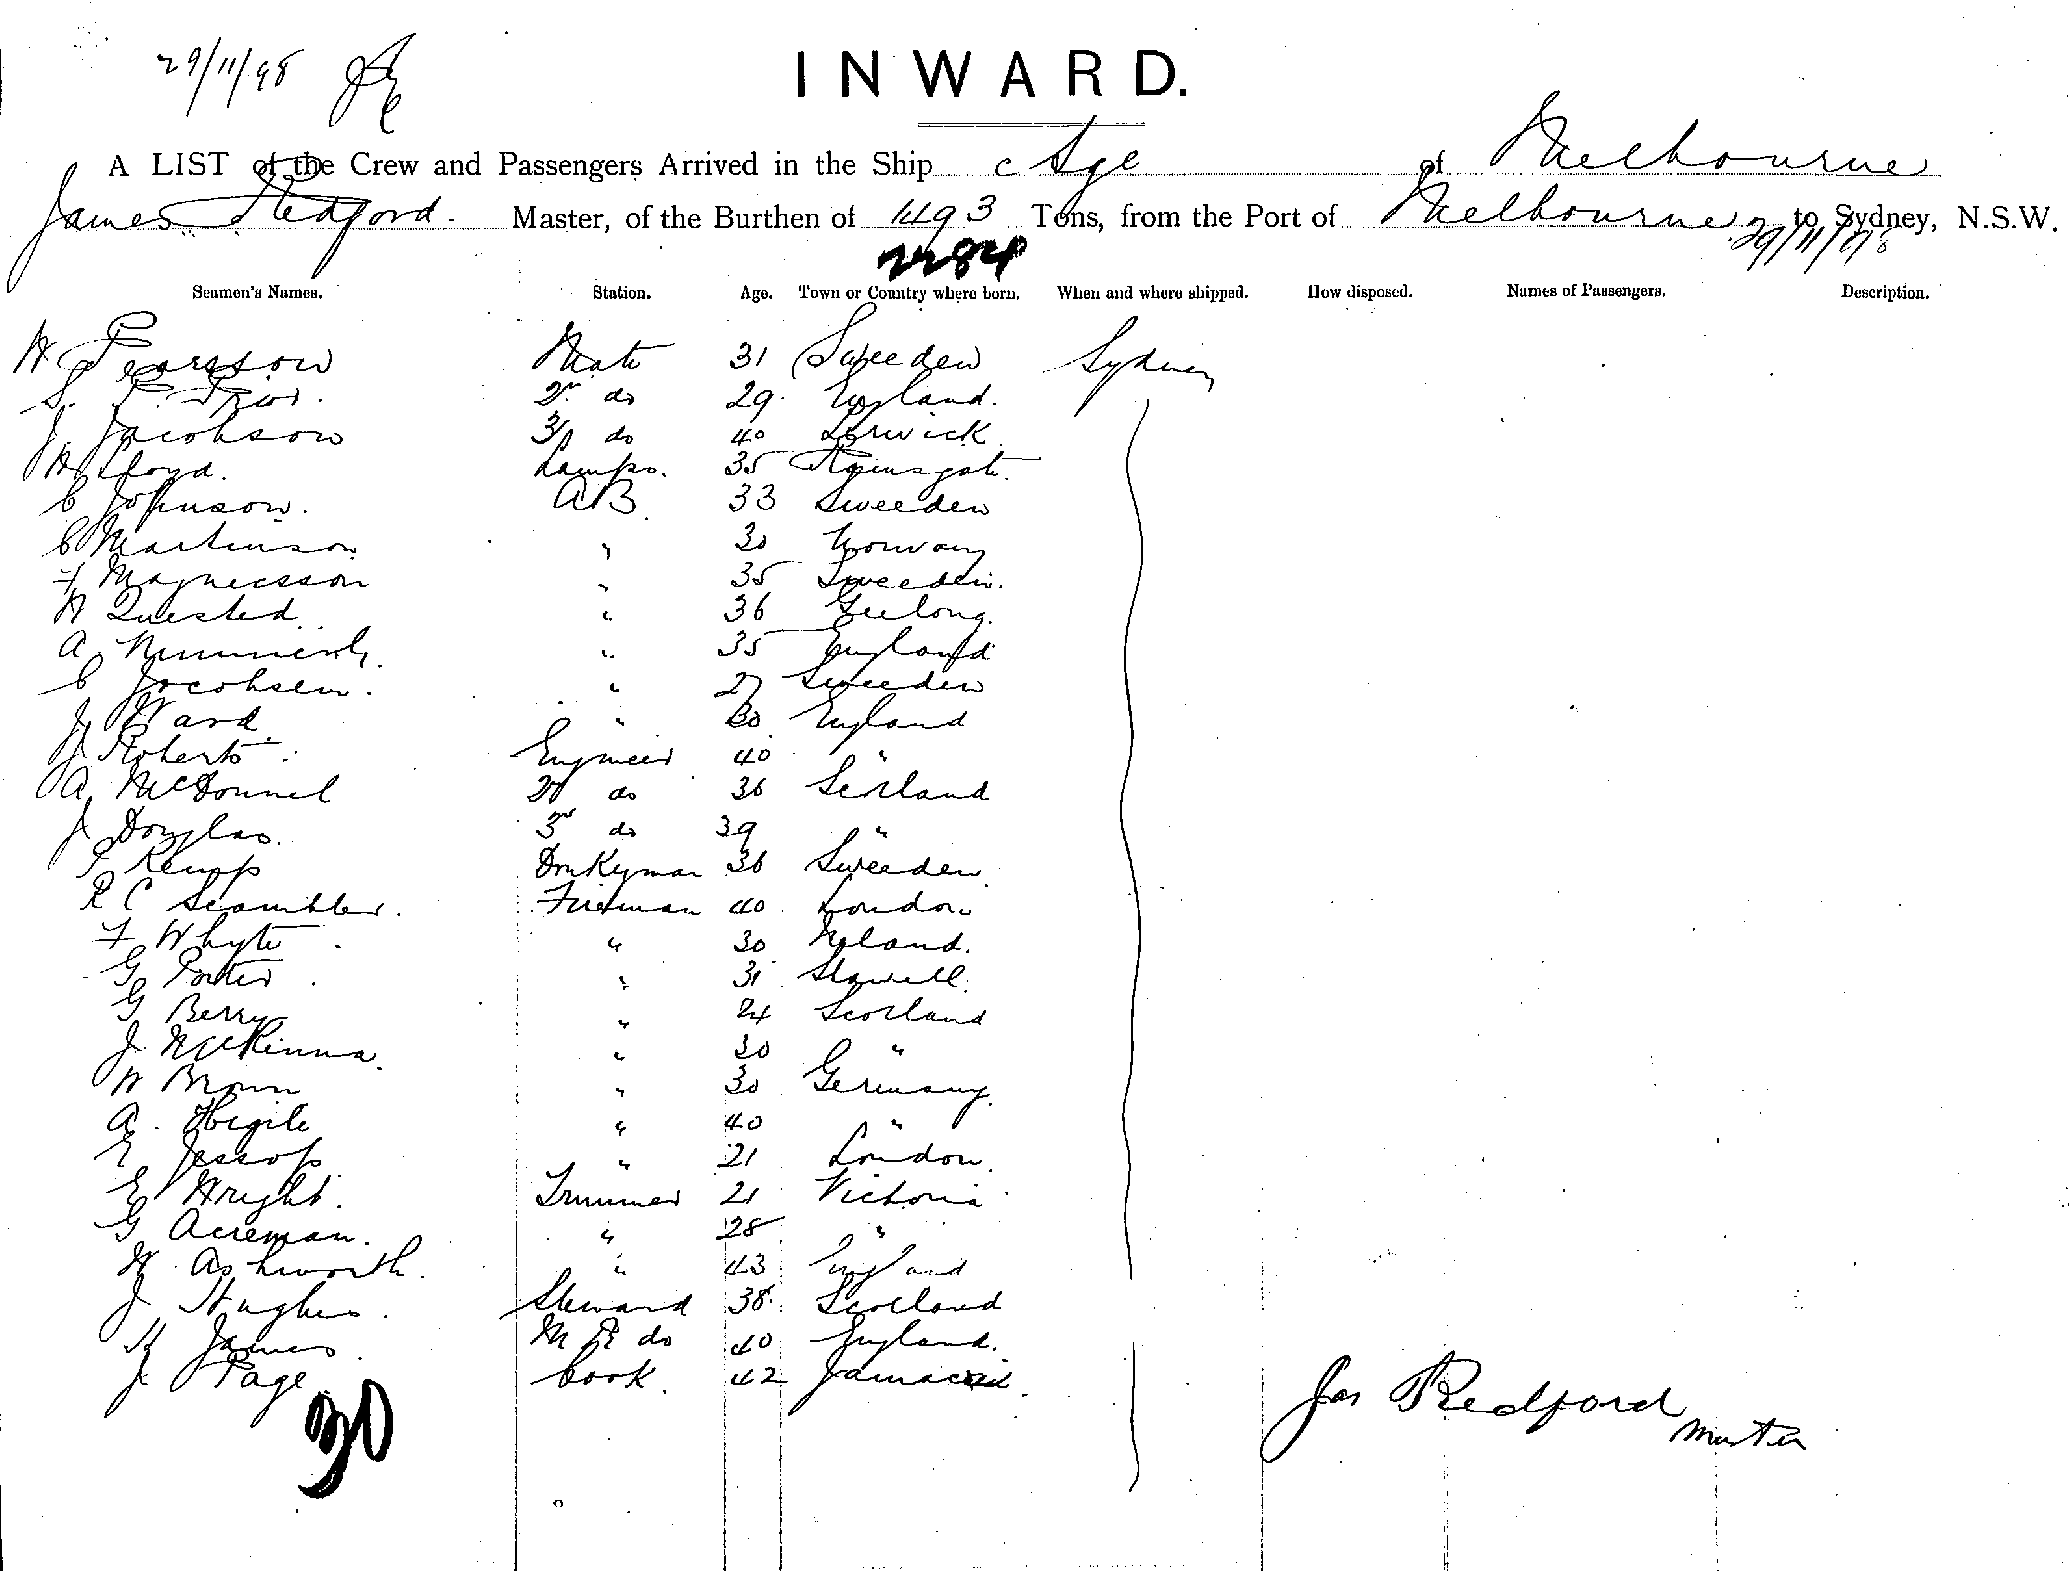 29/11/98
INWARD.
A LIST of the Crew and Passengers Arrived in the Ship Age of Melbourne
James Redford. Master, of the Burthen of 1493 Tons, from the Port of Melbourne to Sydney, N.S.W.
2284 29/11/98
Seamen's Names. Station. Age. Town or Country where born. When and where shipped. How disposed. Names of Passengers. Description.
H Pearsson Mate 31 Sweeden Sydney
S. F. Frior. 2nd do 29 England.
J. Jacobson 3/ do 40 Lerwick
H Lloyd. Lamps. 35 Ramsgate.
C Johnson. AB 33 Sweeden
C Martinson " 30 Norway
F Magnusson " 35 Sweeden.
H Quested. " 36 Geelong.
A " 35 England
C Jacobsen. " 27 Sweeden
J Ward " 30 England
J Roberts Engineer 40 "
A McDonnel 2nd do 36 Scotland
J Douglas. 3rd do 39 "
T Kemp Donkeyman 36 Sweeden
R C Scambler. Fireman 40 London
F Whyte " 30 Ireland.
G Porter " 31 Stawell.
G Berry " 24 Scotland
J McKinna. " 30 "
W Brown " 30 Germany.
A. " 40 "
E Jessop " 21 London.
E Wright. Trimmer 21 Victoria
G Acreman. " 28 "
W Ashworth. " 43 England
J Hughes. Steward 38 Scotland
H James M R do 40 England.
J Page Cook. 42 Jamacia
30
Jas Redford
Master